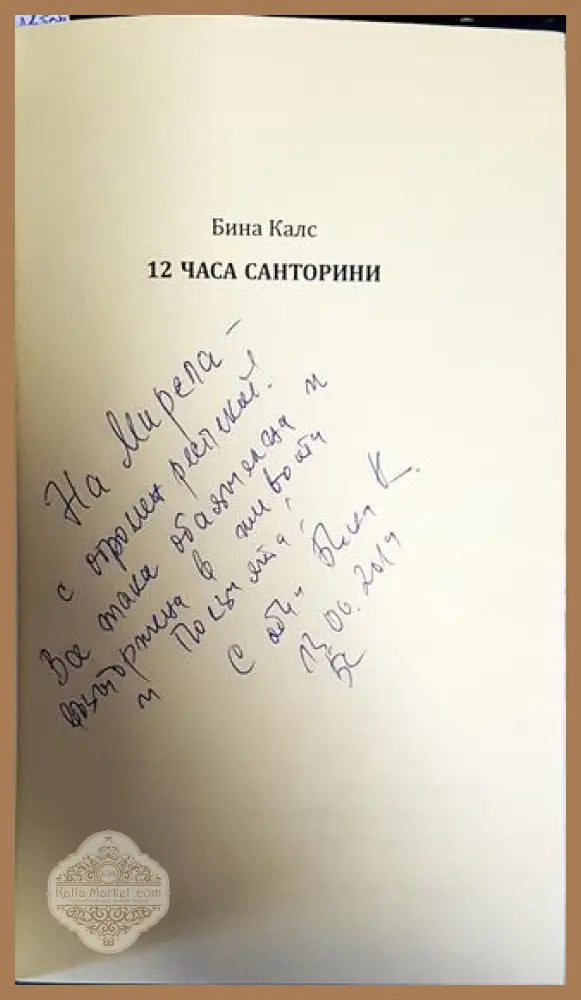 Бина Калс
12 ЧАСА САНТОРИНИ
На Мирела –
с огромен респект!
Все така обаятелна и
възторжена в живота
и
С обич Бина К.
06.2019
Katia-Market.com
KM